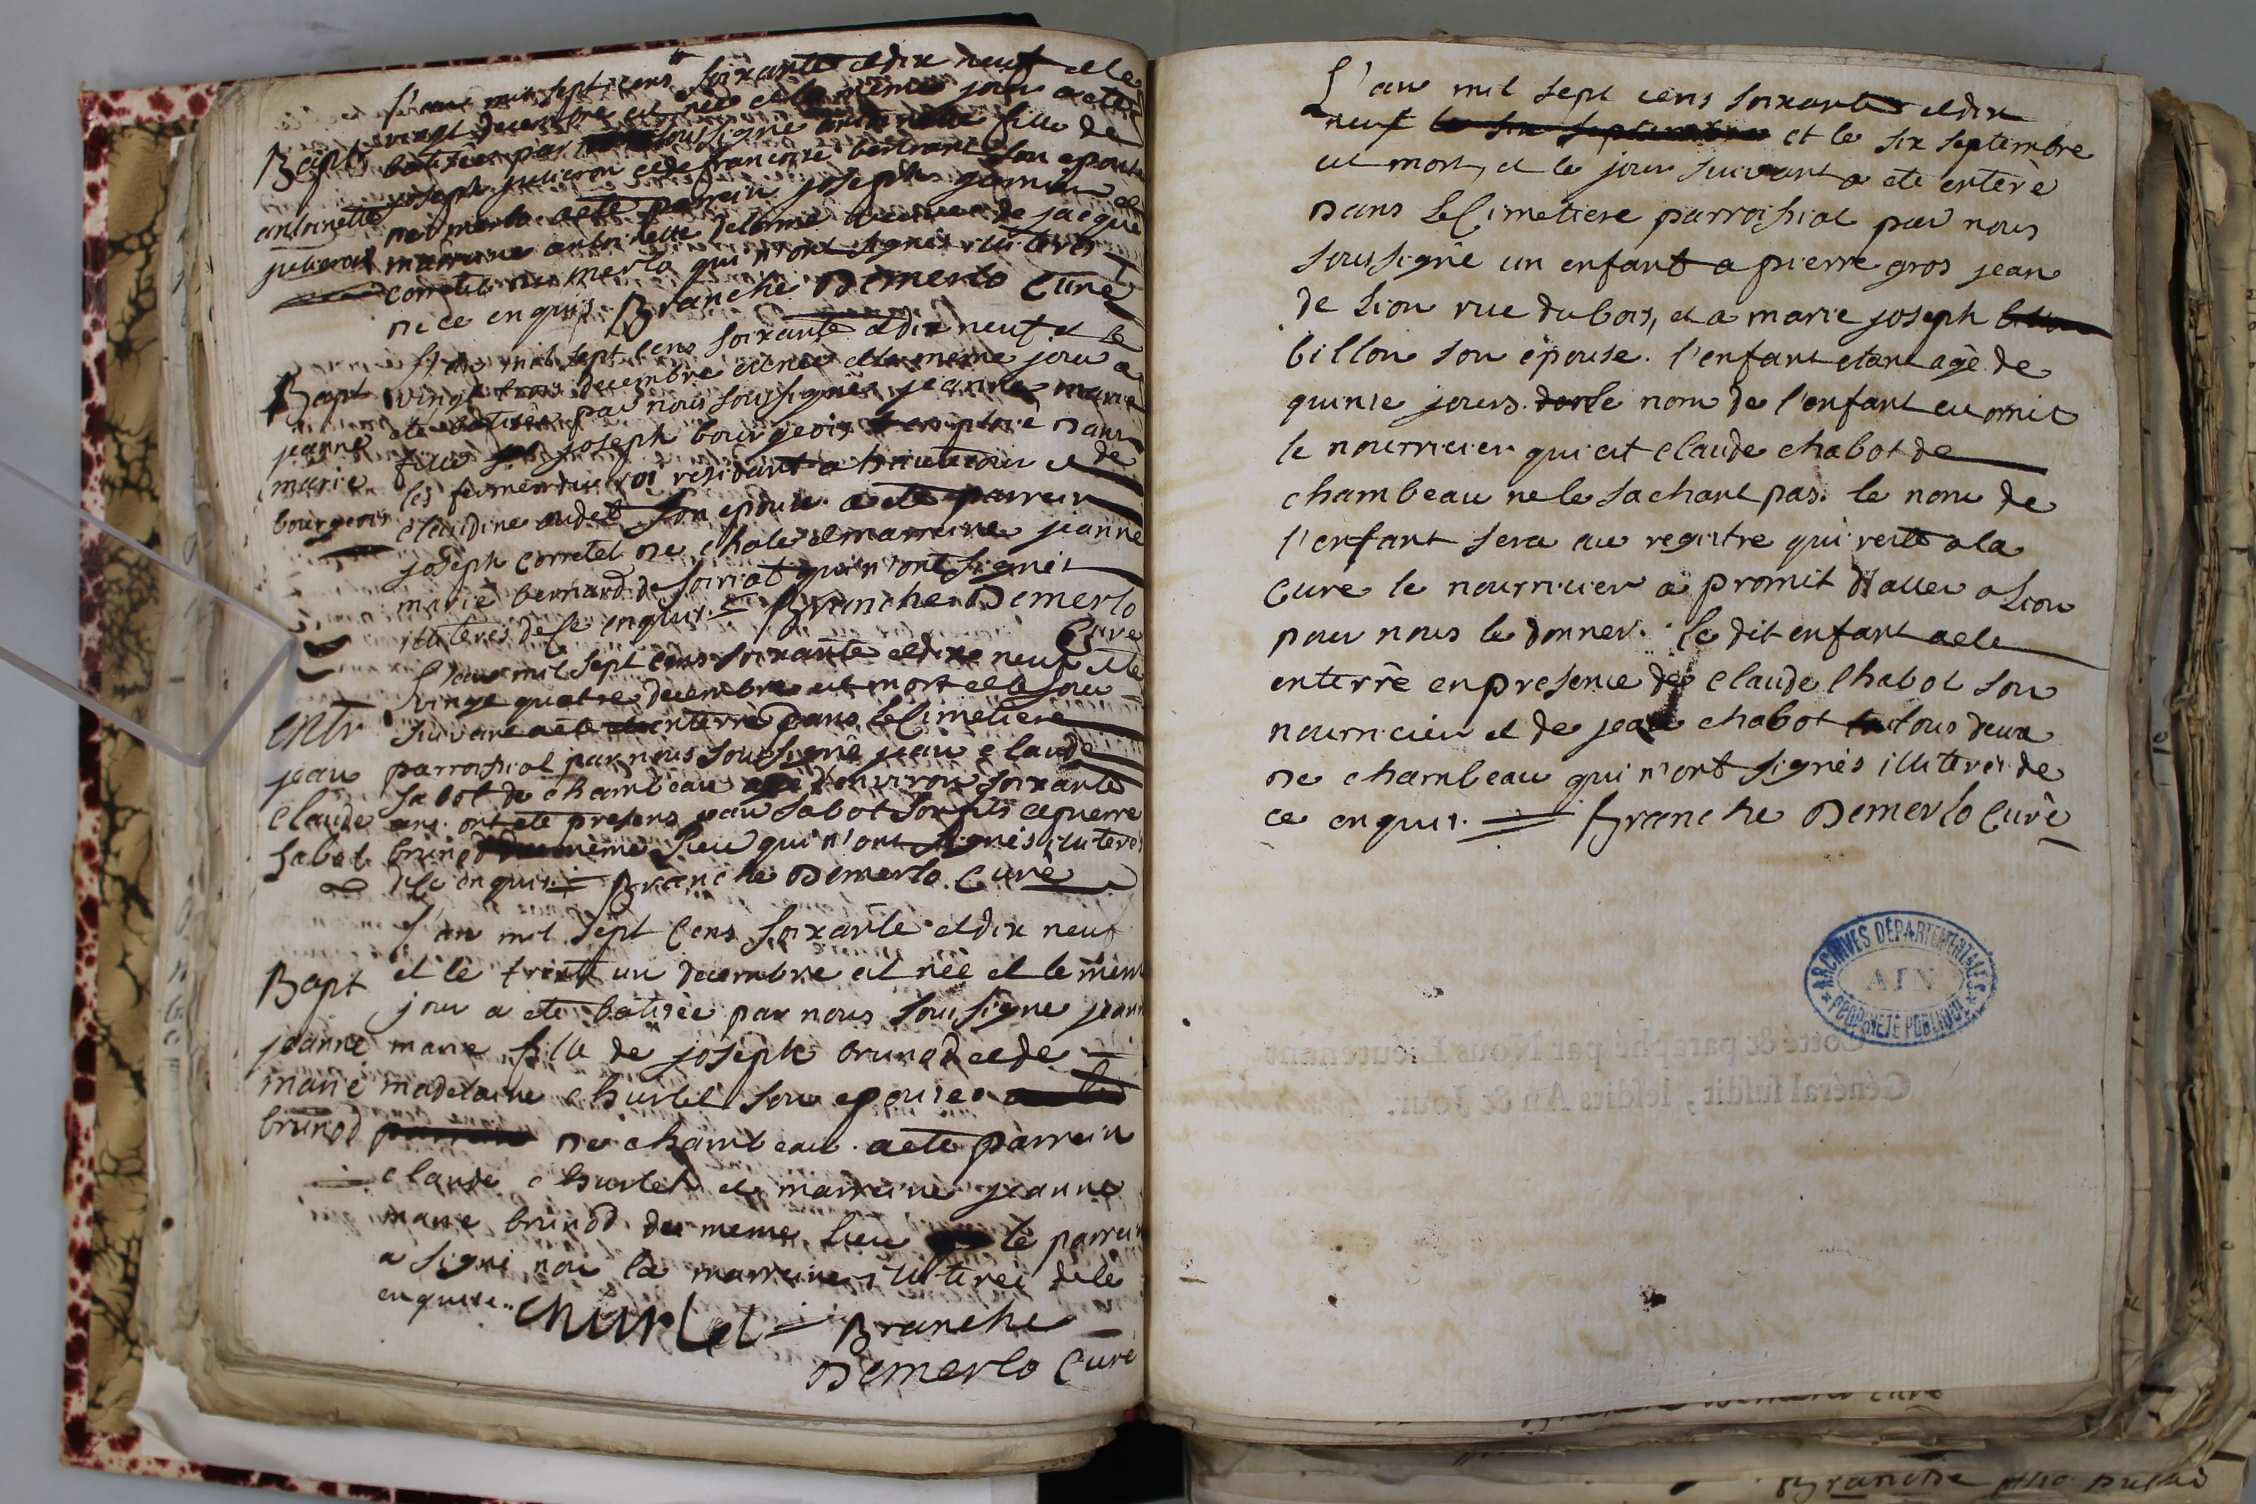 L'an mil sept cens soixante et dix neuf et le
vingt decembre est née et le même jour a eté
Bapt batisée par soussigné antoinette fille de
antoinette joseph juueron et de francoise bertrand son epouse
de merlo a eté parrein joseph et
marraine antoinette delorme de jacque
corretel de merlo qui n'ont signés illiterés
de ce enquis. Branche Demerlo Curé
L'an mil sept cens soixante et dix neuf et le
Bapt vingt trois decembre est née et le même jour a
jeanne eté batisée par nous soussignés jeanne marie
marie fille joseph bourgeois dans
bourgeois les fermes du roi residant a et de
claudine audet son epouse. a eté parrein
joseph corretel de et marreine jeanne
marie bernard de soiriat qui n'ont signés
illiterés de ce enquis. Branche Demerlo
Curé
L'an mil sept cens soixante et dix neuf et le
vingt quatre decembre est mort et le jour
entr suivant a eté enterré dans le Cimetiere
jean parroissial par nous soussigné jean claude
claude sabot de chambeau agé d'environ soixante
sabot ans. ont eté presens jean sabot son fils et pierre
brunod du même lieu qui n'ont signés illiterés
de ce enquis. Branche Demerlo Curé
L'an mil sept cens soixante et dix neuf
Bapt et le trente un decembre est née et le même
jour a eté batisée par nous soussigne jeanne
jeanne marie fille de joseph brunod et de
marie madelaine churlet son epouse
brunod de chambeau. a eté parrein
claude churlet et marreine jeanne
marie brunod du meme lieu le parrein
a signé non la marreine illiterée de ce
enquise. Churlet Branche
Demerlo Curé
L'an mil sept cens soixante et dix
neuf le six septembre et le six septembre
est mort, et le jour suivant a eté enterè
dans le Cimetiere parroissial par nous
soussignè un enfant a pierre gros jean
de Lion rue du bois, et a marie joseph
billon son èpouse. l'enfant etant agè de
quinse jours. le nom de l'enfant est omit
le nourricier qui est claude chabot de
chambeau ne le sachant pas. le nom de
l'enfant sera au registre qui reste a la
Cure le nourricier a promit d'aller a Lion
pour nous le donner. le dit enfant a eté
enterrè en presence de claude chabot son
nourricier et de jean chabot tous deux
de chambeau qui n'ont signés illiterés de
ce enquis. Branche Demerlo Curè
ARCHIVES DÉPARTEMENTALES
AIN
PROPRIÉTÉ PUBLIQUE
Cotté & paraphé par Nous Lieutenant
Général susdit, lesdits An & Jour.
Branche